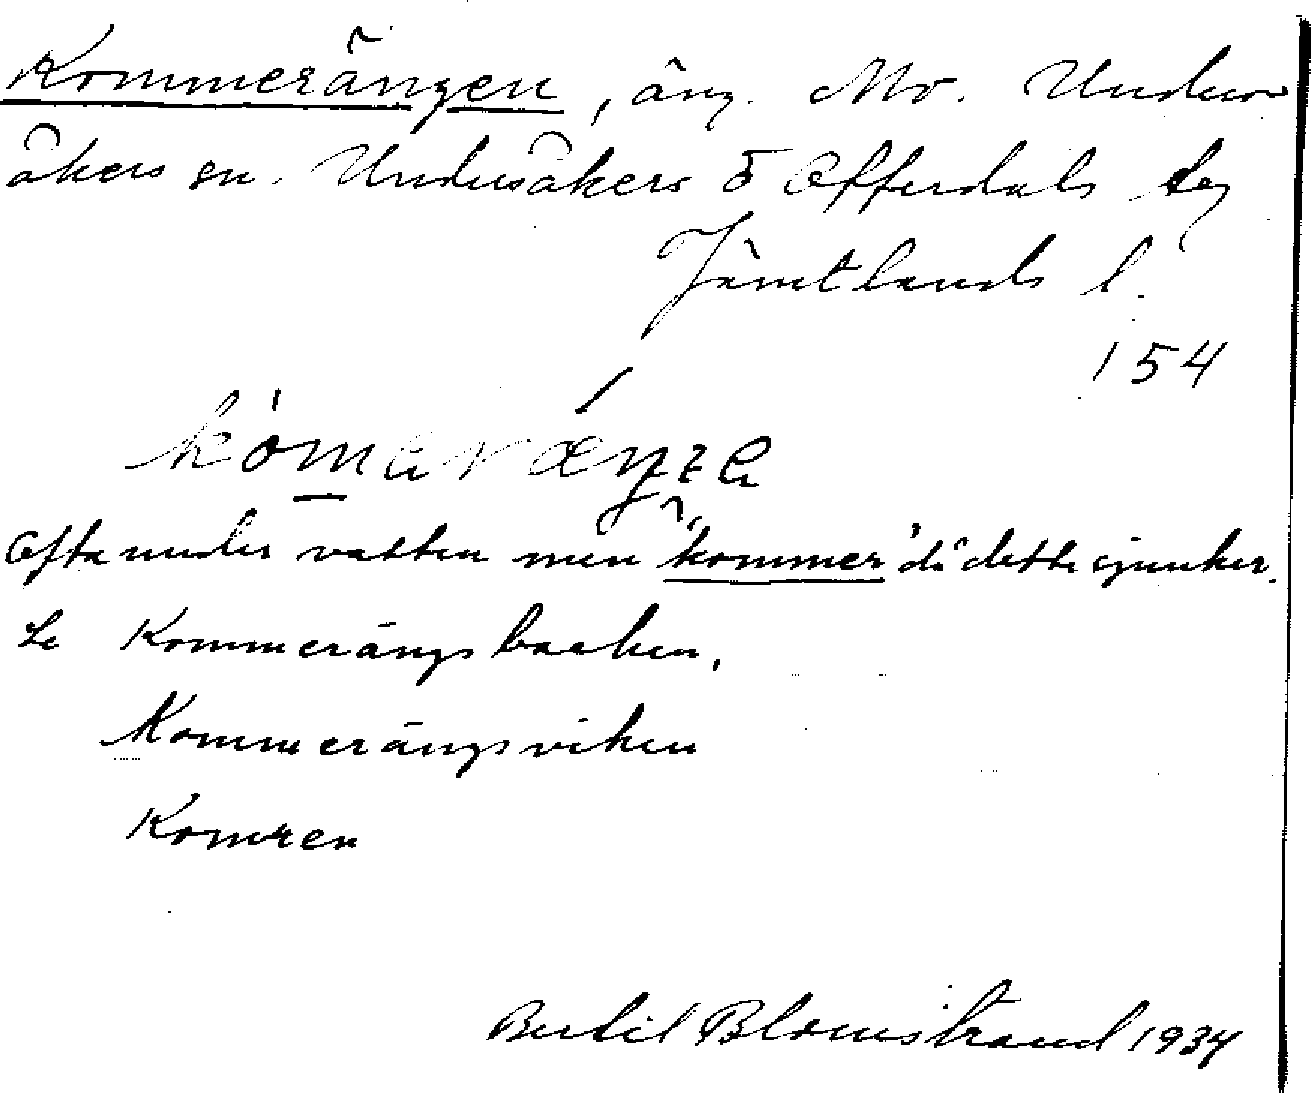 Kommerängen, äng. Mo. Under-
åkers sn. Undersåkers o Offerdals tg
Jämtlands l.
154
Ofta under vatten men "kommer" då detta sjunker.
Se Kommerängsbacken,
Kommerängsviken
Komren
Bertil Blomstrand 1934